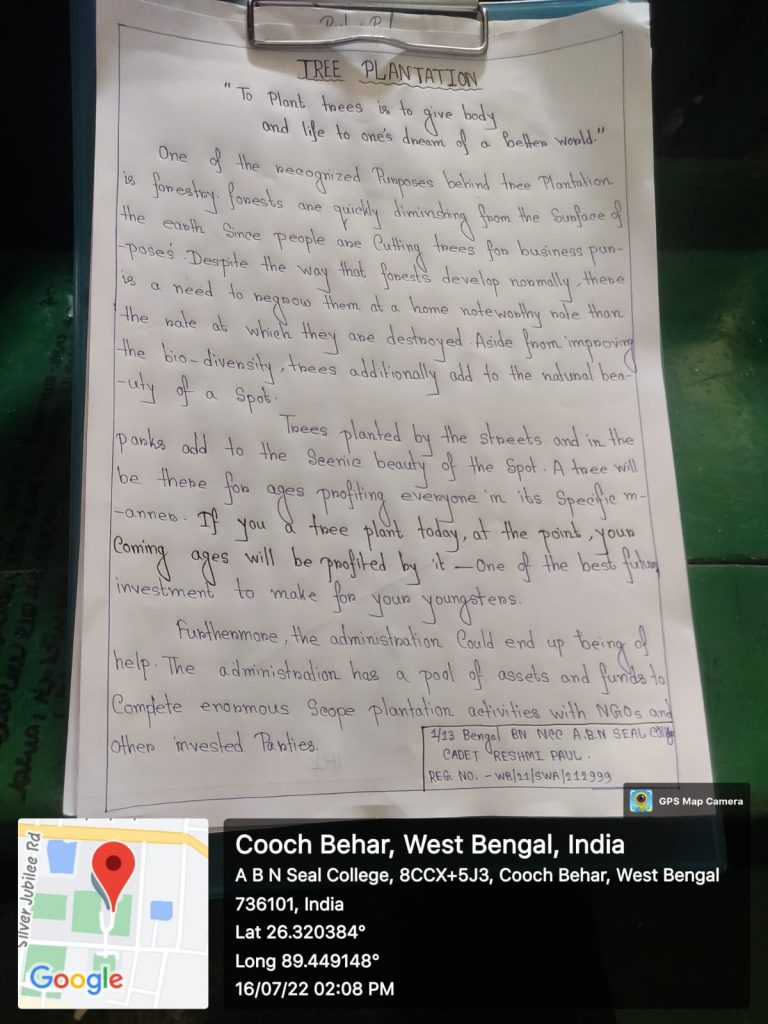 TREE PLANTATION
"To Plant trees is to give body
and life to one's dream of a better world."
One of the recognized Purposes behind tree Plantation
is forestry. forests are quickly diminishing from the Surface of
the earth Since people are Cutting trees for business pur-
-poses. Despite the way that forests develop normally, there
is a need to regrow them at a home noteworthy rate than
the rate at which they are destroyed. Aside from improving
the bio-diversity, trees additionally add to the natural bea-
-uty of a Spot.
Trees planted by the streets and in the
parks add to the Seenic beauty of the Spot. A tree will
be there for ages profiting everyone in its Specific m-
-anner. If you a tree plant today, at the point, your
Coming ages will be profited by it — One of the best future
investment to make for your youngsters.
Furthermore, the administration Could end up being of
help. The administration has a pool of assets and funds to
Complete enormous Scope plantation activities with NGOs and
other invested Parties.
1/13 Bengal BN NCC A.B.N SEAL College
CADET RESHMI PAUL.
REG NO. - WB/21/SWA/212999
GPS Map Camera
Silver Jubilee Rd
Google
Cooch Behar, West Bengal, India
A B N Seal College, 8CCX+5J3, Cooch Behar, West Bengal
736101, India
Lat 26.320384°
Long 89.449148°
16/07/22 02:08 PM